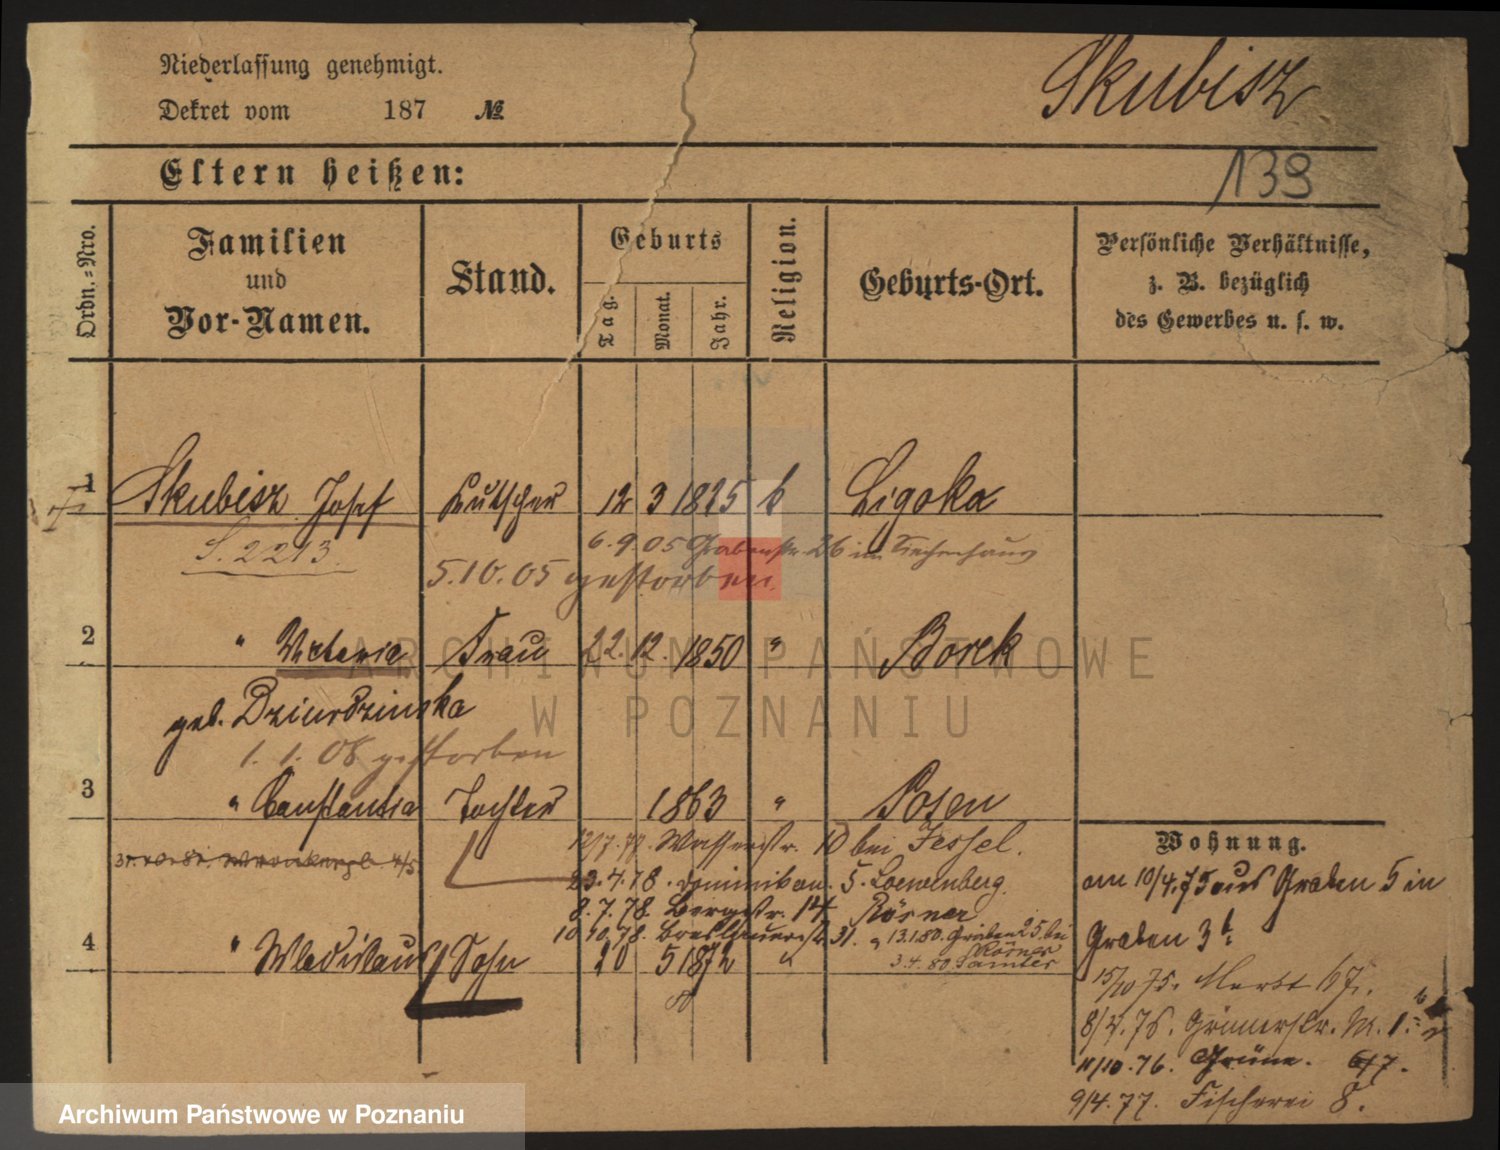 Niederlassung genehmigt.
Skubisz
Dekret vom 187 №
139
Eltern heißen:
Ordn.-Nro.
Familien
und
Vor-Namen.
Stand.
Geburts
Tag.
Monat.
Jahr.
Religion.
Geburts-Ort.
Persönliche Verhältnisse,
z. B. bezüglich
des Gewerbes u. s. w.
1 Skubisz Josef Kutscher 12 3 1825 k Ligoka
S. 2213. 6.9.05 Grabenstr. 26 im Siechenhaus
5.10.05 gestorben.
2 " Victoria Frau 22. 12. 1850 " Borek
geb. Dziurdzinska
1. 1. 08 gestorben
3 " Constantia Tochter 1863 " Posen
12/7. 77. Wasserstr. 10 bei Jessel.
23.4.78. Dominikan. 5. Loewenberg.
8.7.78. Bergstr. 14 Rösner
10.10.78. Breslauerstr. 31. " 13.1.80. Graben 25. bei
Rösner
3.4.80. Samter
4 " Wladislaus Sohn 20 5 1872 "
Wohnung.
am 10/4.75 aus Graben 5 in
Graben 3b.
15/10 75. Markt 67.
8/4.76. Grünerstr. N. 1.
11/10.76. Grüne. 6/7.
9/4.77. Fischerei 8.
ARCHIWUM PAŃSTWOWE
W POZNANIU
Archiwum Państwowe w Poznaniu